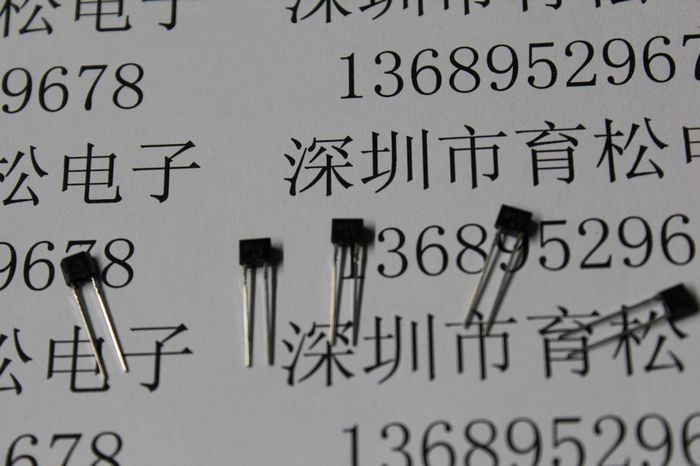 松电子 深圳市育松
9678 1368952967
松电子 深圳市育松电
9678 136895296
松电子 深圳市育松
678 1368952967